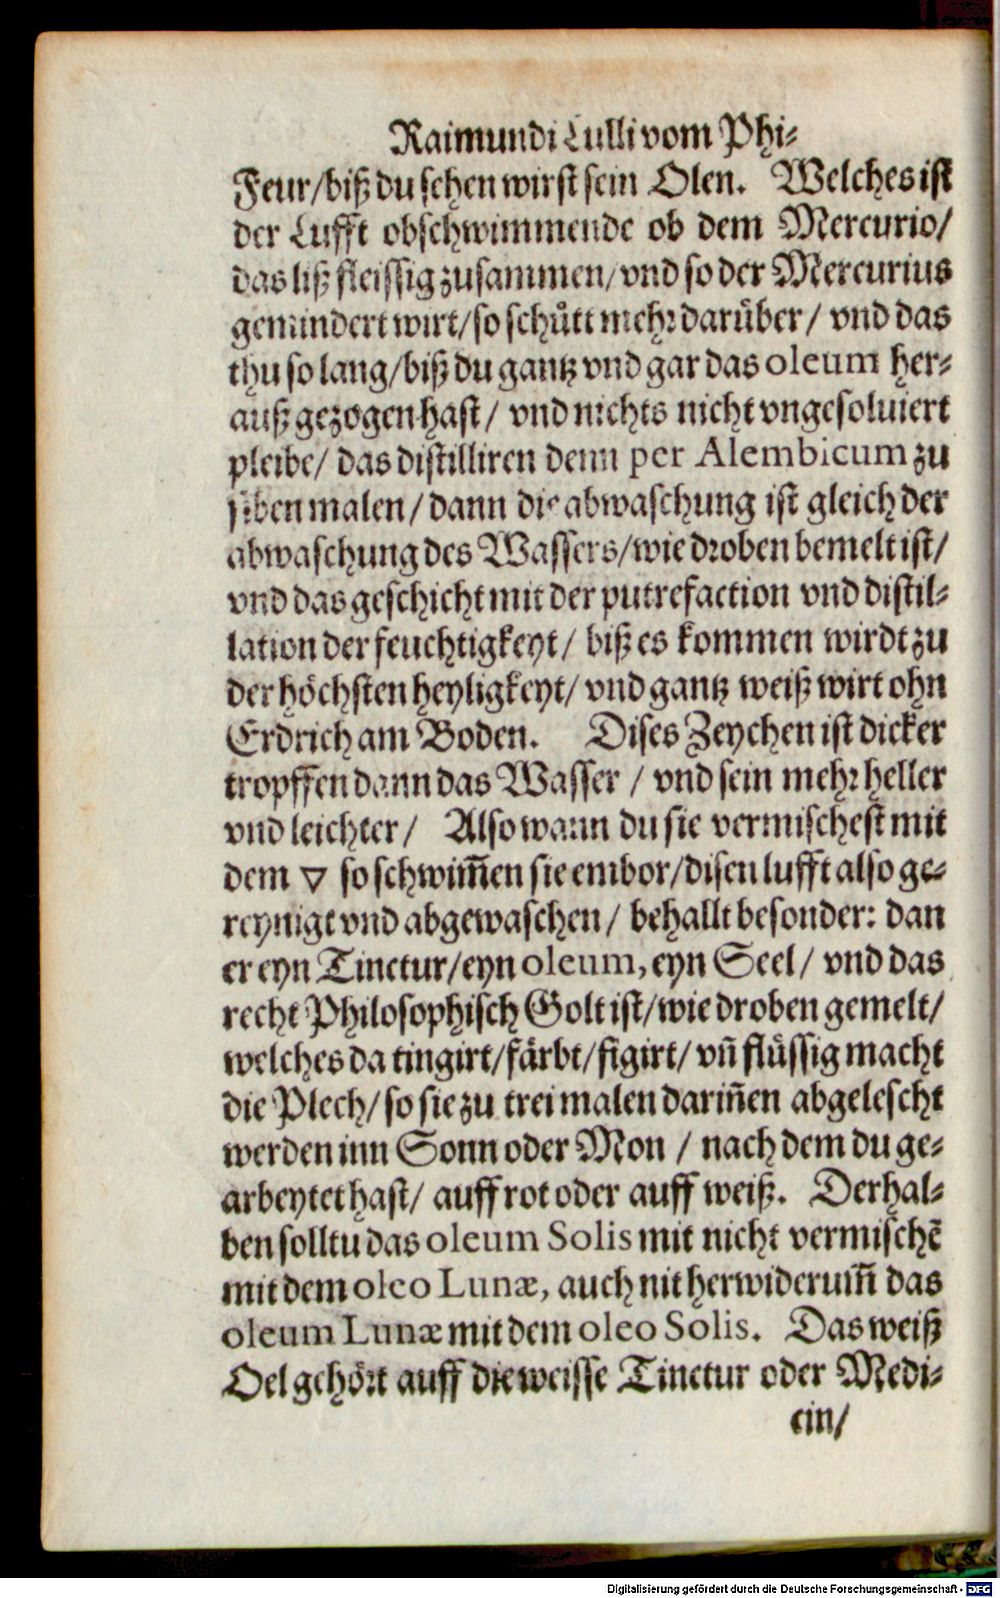 Raimundi Lulli vom Phi-
Feur/ biß du sehen wirst sein Olen. Welches ist
der Lufft obschwimmende ob dem Mercurio/
das liß fleissig zusammen/ vnd so der Mercurius
gemindert wirt/ so schütt mehr darüber/ vnd das
thu so lang/ biß du gantz vnd gar das oleum her-
auß gezogen hast/ vnd nichts nicht vngesoluiert
pleibe/ das distilliren denn per Alembicum zu
siben malen/ dann die abwaschung ist gleich der
abwaschung des Wassers/ wie droben bemelt ist/
vnd das geschicht mit der putrefaction vnd distil-
lation der feuchtigkeyt/ biß es kommen wirdt zu
der höchsten heyligkeyt/ vnd gantz weiß wirt ohn
Erdrich am Boden. Dises Zeychen ist dicker
tropffen dann das Wasser / vnd sein mehr heller
vnd leichter/ Also wann du sie vermischest mit
dem ▽ so schwim̄en sie embor/ disen lufft also ge-
reynigt vnd abgewaschen/ behallt besonder: dan
er eyn Tinctur/ eyn oleum, eyn Seel/ vnd das
recht Philosophisch Golt ist/ wie droben gemelt/
welches da tingirt/ färbt/ figirt/ vn̄ flüssig macht
die Plech/ so sie zu trei malen darin̄en abgelescht
werden inn Sonn oder Mon / nach dem du ge-
arbeytet hast/ auff rot oder auff weiß. Derhal-
ben solltu das oleum Solis mit nicht vermischē
mit dem oleo Lunæ, auch nit herwiderum̄ das
oleum Lunæ mit dem oleo Solis. Das weiß
Oel gehört auff die weisse Tinctur oder Medi-
cin/
Digitalisierung gefördert durch die Deutsche Forschungsgemeinschaft - DFG